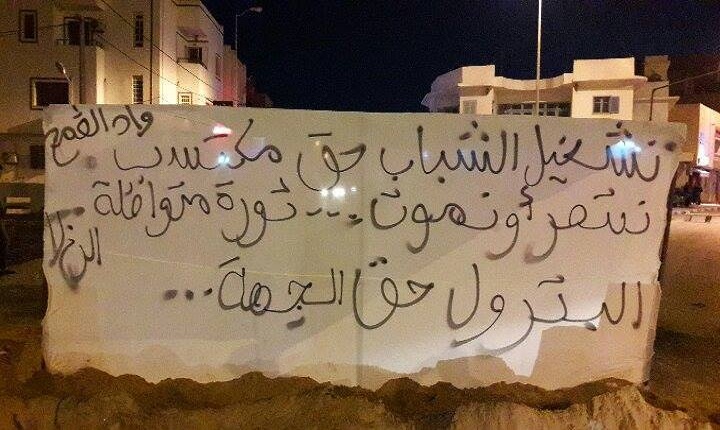 تشغيل الشباب حق مكتسب
ننتصر أو نموت... ثورة متواصلة
البترول حق الجهة...
واد القمح
الرخ لا